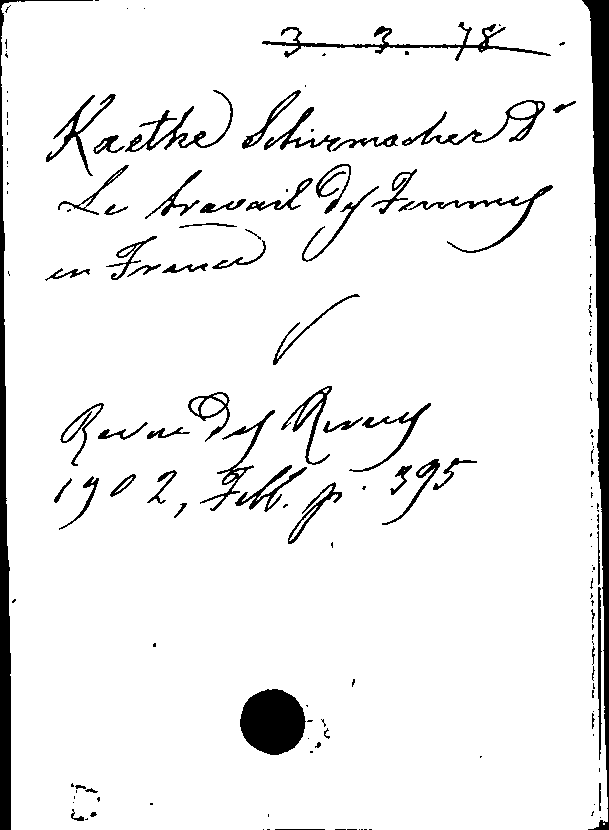 3. 3. 78
Kaethe Schirmacher Dr
Le travail des Femmes
en France
Revue des Revues
1902, Febb. p. 395